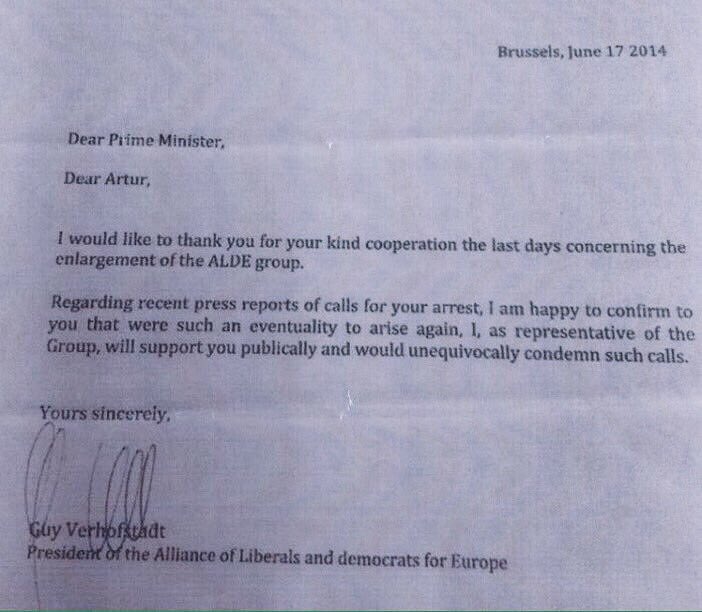 Brussels, June 17 2014
Dear Prime Minister,
Dear Artur,
I would like to thank you for your kind cooperation the last days concerning the
enlargement of the ALDE group.
Regarding recent press reports of calls for your arrest, I am happy to confirm to
you that were such an eventuality to arise again, I, as representative of the
Group, will support you publically and would unequivocally condemn such calls.
Yours sincerely,
Guy Verhofstadt
President of the Alliance of Liberals and democrats for Europe